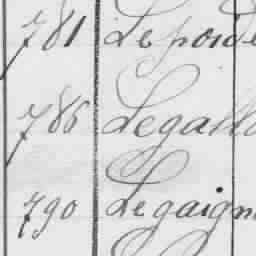 781 Lepoide
786 Legaill
790 Legaign